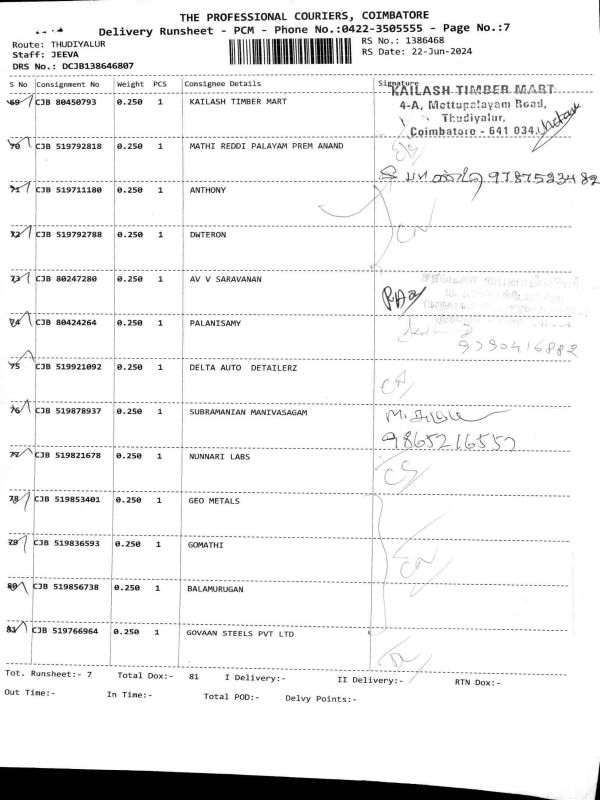 THE PROFESSIONAL COURIERS, COIMBATORE
Delivery Runsheet - PCM - Phone No.:0422-3505555 - Page No.:7
Route: THUDIYALUR RS No.: 1386468
Staff: JEEVA RS Date: 22-Jun-2024
DRS No.: DCJB138646807
S No Consignment No Weight PCS Consignee Details Signature
69 CJB 80450793 0.250 1 KAILASH TIMBER MART
KAILASH TIMBER MART
4-A, Mettupalayam Road,
Thudiyalur,
Coimbatore - 641 034.
70 CJB 519792818 0.250 1 MATHI REDDI PALAYAM PREM ANAND
9787523482
71 CJB 519711180 0.250 1 ANTHONY
72 CJB 519792788 0.250 1 DWTERON
CN
73 CJB 80247280 0.250 1 AV V SARAVANAN
74 CJB 80424264 0.250 1 PALANISAMY
9790416882
75 CJB 519921092 0.250 1 DELTA AUTO DETAILERZ
76 CJB 519878937 0.250 1 SUBRAMANIAN MANIVASAGAM
77 CJB 519821678 0.250 1 NUNNARI LABS
78 CJB 519853401 0.250 1 GEO METALS
79 CJB 519836593 0.250 1 GOMATHI
CN
80 CJB 519856738 0.250 1 BALAMURUGAN
81 CJB 519766964 0.250 1 GOVAAN STEELS PVT LTD
Tot. Runsheet:- 7 Total Dox:- 81 I Delivery:- II Delivery:- RTN Dox:-
Out Time:- In Time:- Total POD:- Delvy Points:-